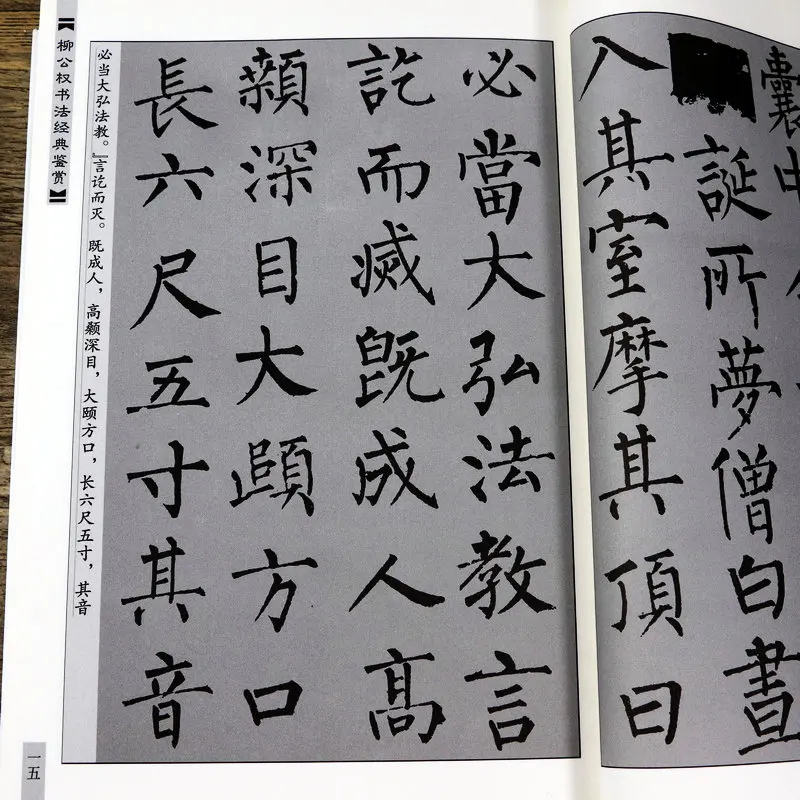 囊中
誕所夢僧白晝
入其室摩其頂曰
必當大弘法教言
訖而滅旣成人高
顙深目大頤方口
長六尺五寸其音
必当大弘法教。』言讫而灭。既成人，高颡深目，大颐方口，长六尺五寸，其音
【柳公权书法经典鉴赏】
一五